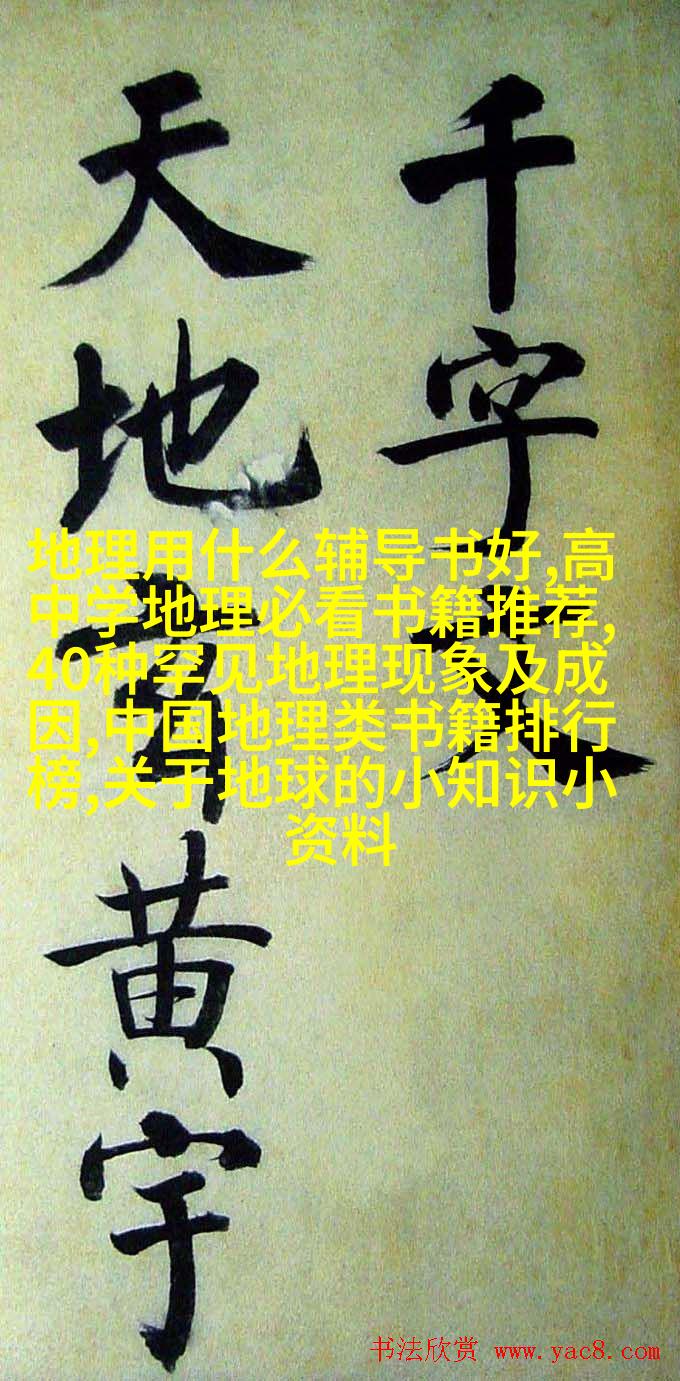 千字文
天地黄宇
地理用什么辅导书好,高
中学地理必看书籍推荐,
40种罕见地理现象及成
因,中国地理类书籍排行
榜,关于地球的小知识小
资料
书法欣赏 www.yac8.com